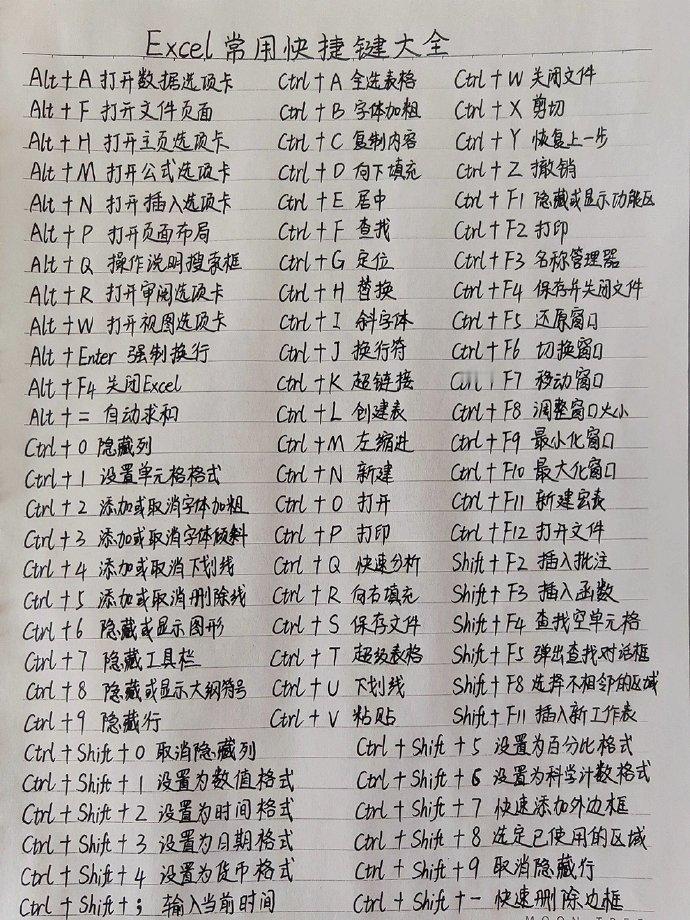 Excel 常用快捷键大全
Alt+A 打开数据选项卡
Alt+F 打开文件页面
Alt+H 打开主页选项卡
Alt+M 打开公式选项卡
Alt+N 打开插入选项卡
Alt+P 打开页面布局
Alt+Q 操作说明搜索框
Alt+R 打开审阅选项卡
Alt+W 打开视图选项卡
Alt+Enter 强制换行
Alt+F4 关闭Excel
Alt+= 自动求和
Ctrl+0 隐藏列
Ctrl+1 设置单元格格式
Ctrl+2 添加或取消字体加粗
Ctrl+3 添加或取消字体倾斜
Ctrl+4 添加或取消下划线
Ctrl+5 添加或取消删除线
Ctrl+6 隐藏或显示图形
Ctrl+7 隐藏工具栏
Ctrl+8 隐藏或显示大纲符号
Ctrl+9 隐藏行
Ctrl+A 全选表格
Ctrl+B 字体加粗
Ctrl+C 复制内容
Ctrl+D 向下填充
Ctrl+E 居中
Ctrl+F 查找
Ctrl+G 定位
Ctrl+H 替换
Ctrl+I 斜字体
Ctrl+J 换行符
Ctrl+K 超链接
Ctrl+L 创建表
Ctrl+M 左缩进
Ctrl+N 新建
Ctrl+O 打开
Ctrl+P 打印
Ctrl+Q 快速分析
Ctrl+R 向右填充
Ctrl+S 保存文件
Ctrl+T 超级表格
Ctrl+U 下划线
Ctrl+V 粘贴
Ctrl+W 关闭文件
Ctrl+X 剪切
Ctrl+Y 恢复上一步
Ctrl+Z 撤销
Ctrl+F1 隐藏或显示功能区
Ctrl+F2 打印
Ctrl+F3 名称管理器
Ctrl+F4 保存并关闭文件
Ctrl+F5 还原窗口
Ctrl+F6 切换窗口
Ctrl+F7 移动窗口
Ctrl+F8 调整窗口大小
Ctrl+F9 最小化窗口
Ctrl+F10 最大化窗口
Ctrl+F11 新建宏表
Ctrl+F12 打开文件
Shift+F2 插入批注
Shift+F3 插入函数
Shift+F4 查找空单元格
Shift+F5 弹出查找对话框
Shift+F8 选择不相邻的区域
Shift+F11 插入新工作表
Ctrl+Shift+0 取消隐藏列
Ctrl+Shift+1 设置为数值格式
Ctrl+Shift+2 设置为时间格式
Ctrl+Shift+3 设置为日期格式
Ctrl+Shift+4 设置为货币格式
Ctrl+Shift+; 输入当前时间
Ctrl+Shift+5 设置为百分比格式
Ctrl+Shift+6 设置为科学计数格式
Ctrl+Shift+7 快速添加外边框
Ctrl+Shift+8 选定已使用的区域
Ctrl+Shift+9 取消隐藏行
Ctrl+Shift+- 快速删除边框